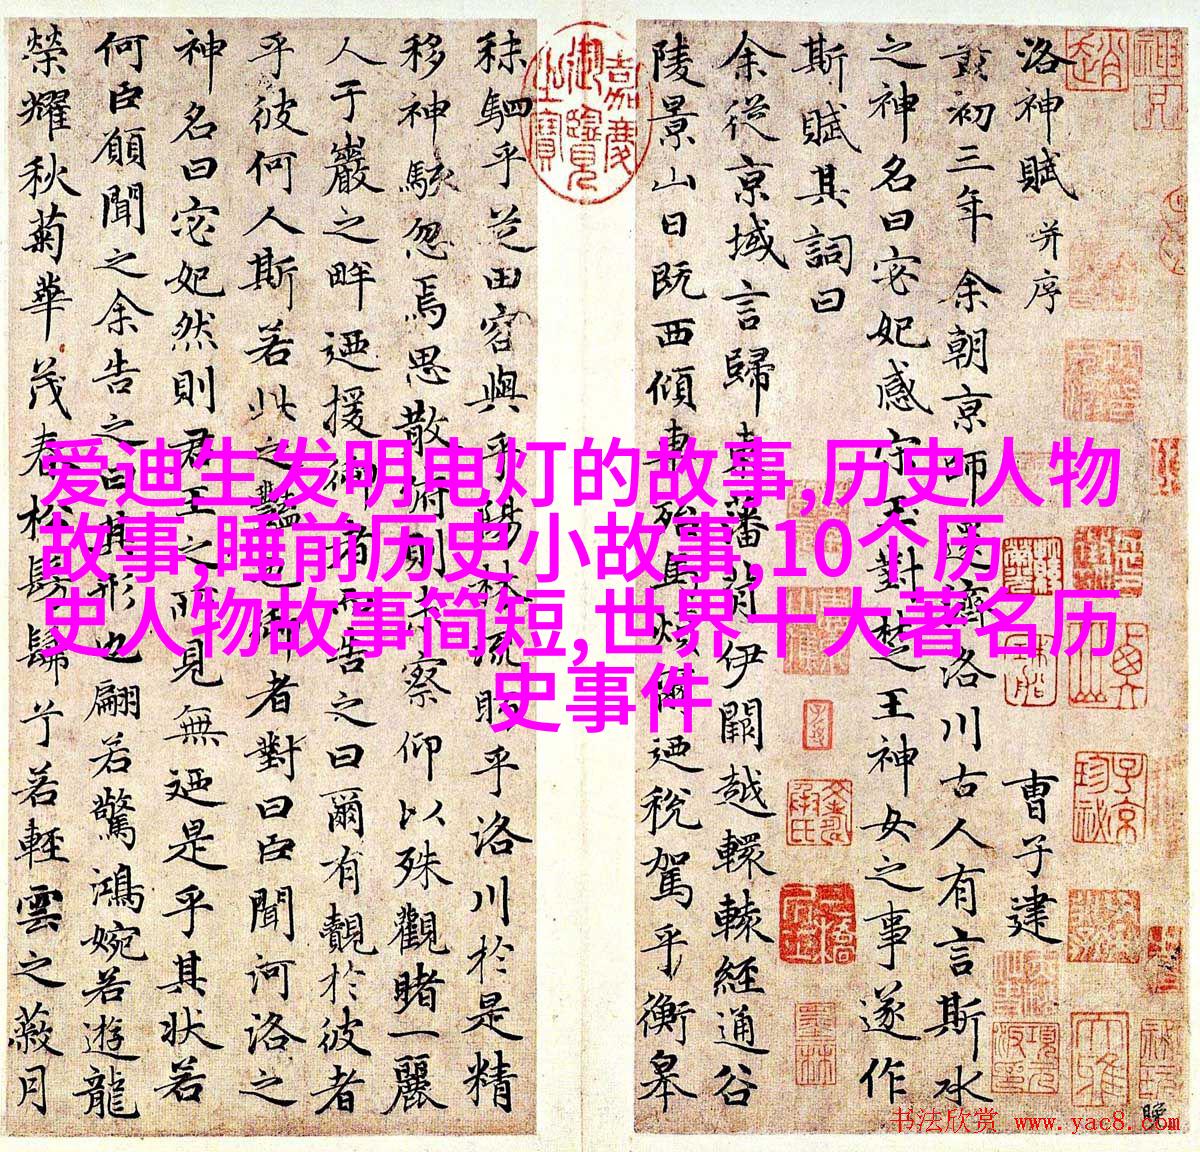 洛神賦 并序
曹子建
黃初三年余朝京師還濟洛川古人有言斯水
之神名曰宓妃感宋玉對楚王神女之事遂作
斯賦其詞曰
余從京域言歸東藩背伊闕越轘轅經通谷
陵景山日既西傾車殆馬煩爾迺稅駕乎蘅皋
秣駟乎芝田容與乎陽林流眄乎洛川於是精
移神駭忽焉思散俯則未察仰以殊觀睹一麗
人于巖之畔迺援御者而告之曰爾有覿於彼者
乎彼何人斯若此之豔也御者對曰臣聞河洛之
神名曰宓妃然則君王之所見無迺是乎其狀若
何臣願聞之余告之曰其形也翩若驚鴻婉若遊龍
榮耀秋菊華茂春松髣髴兮若輕雲之蔽月
嘉慶御覽之寶
爱迪生发明电灯的故事,历史人物
故事,睡前历史小故事,10个历
史人物故事简短,世界十大著名历
史事件
书法欣赏 www.yac8.com